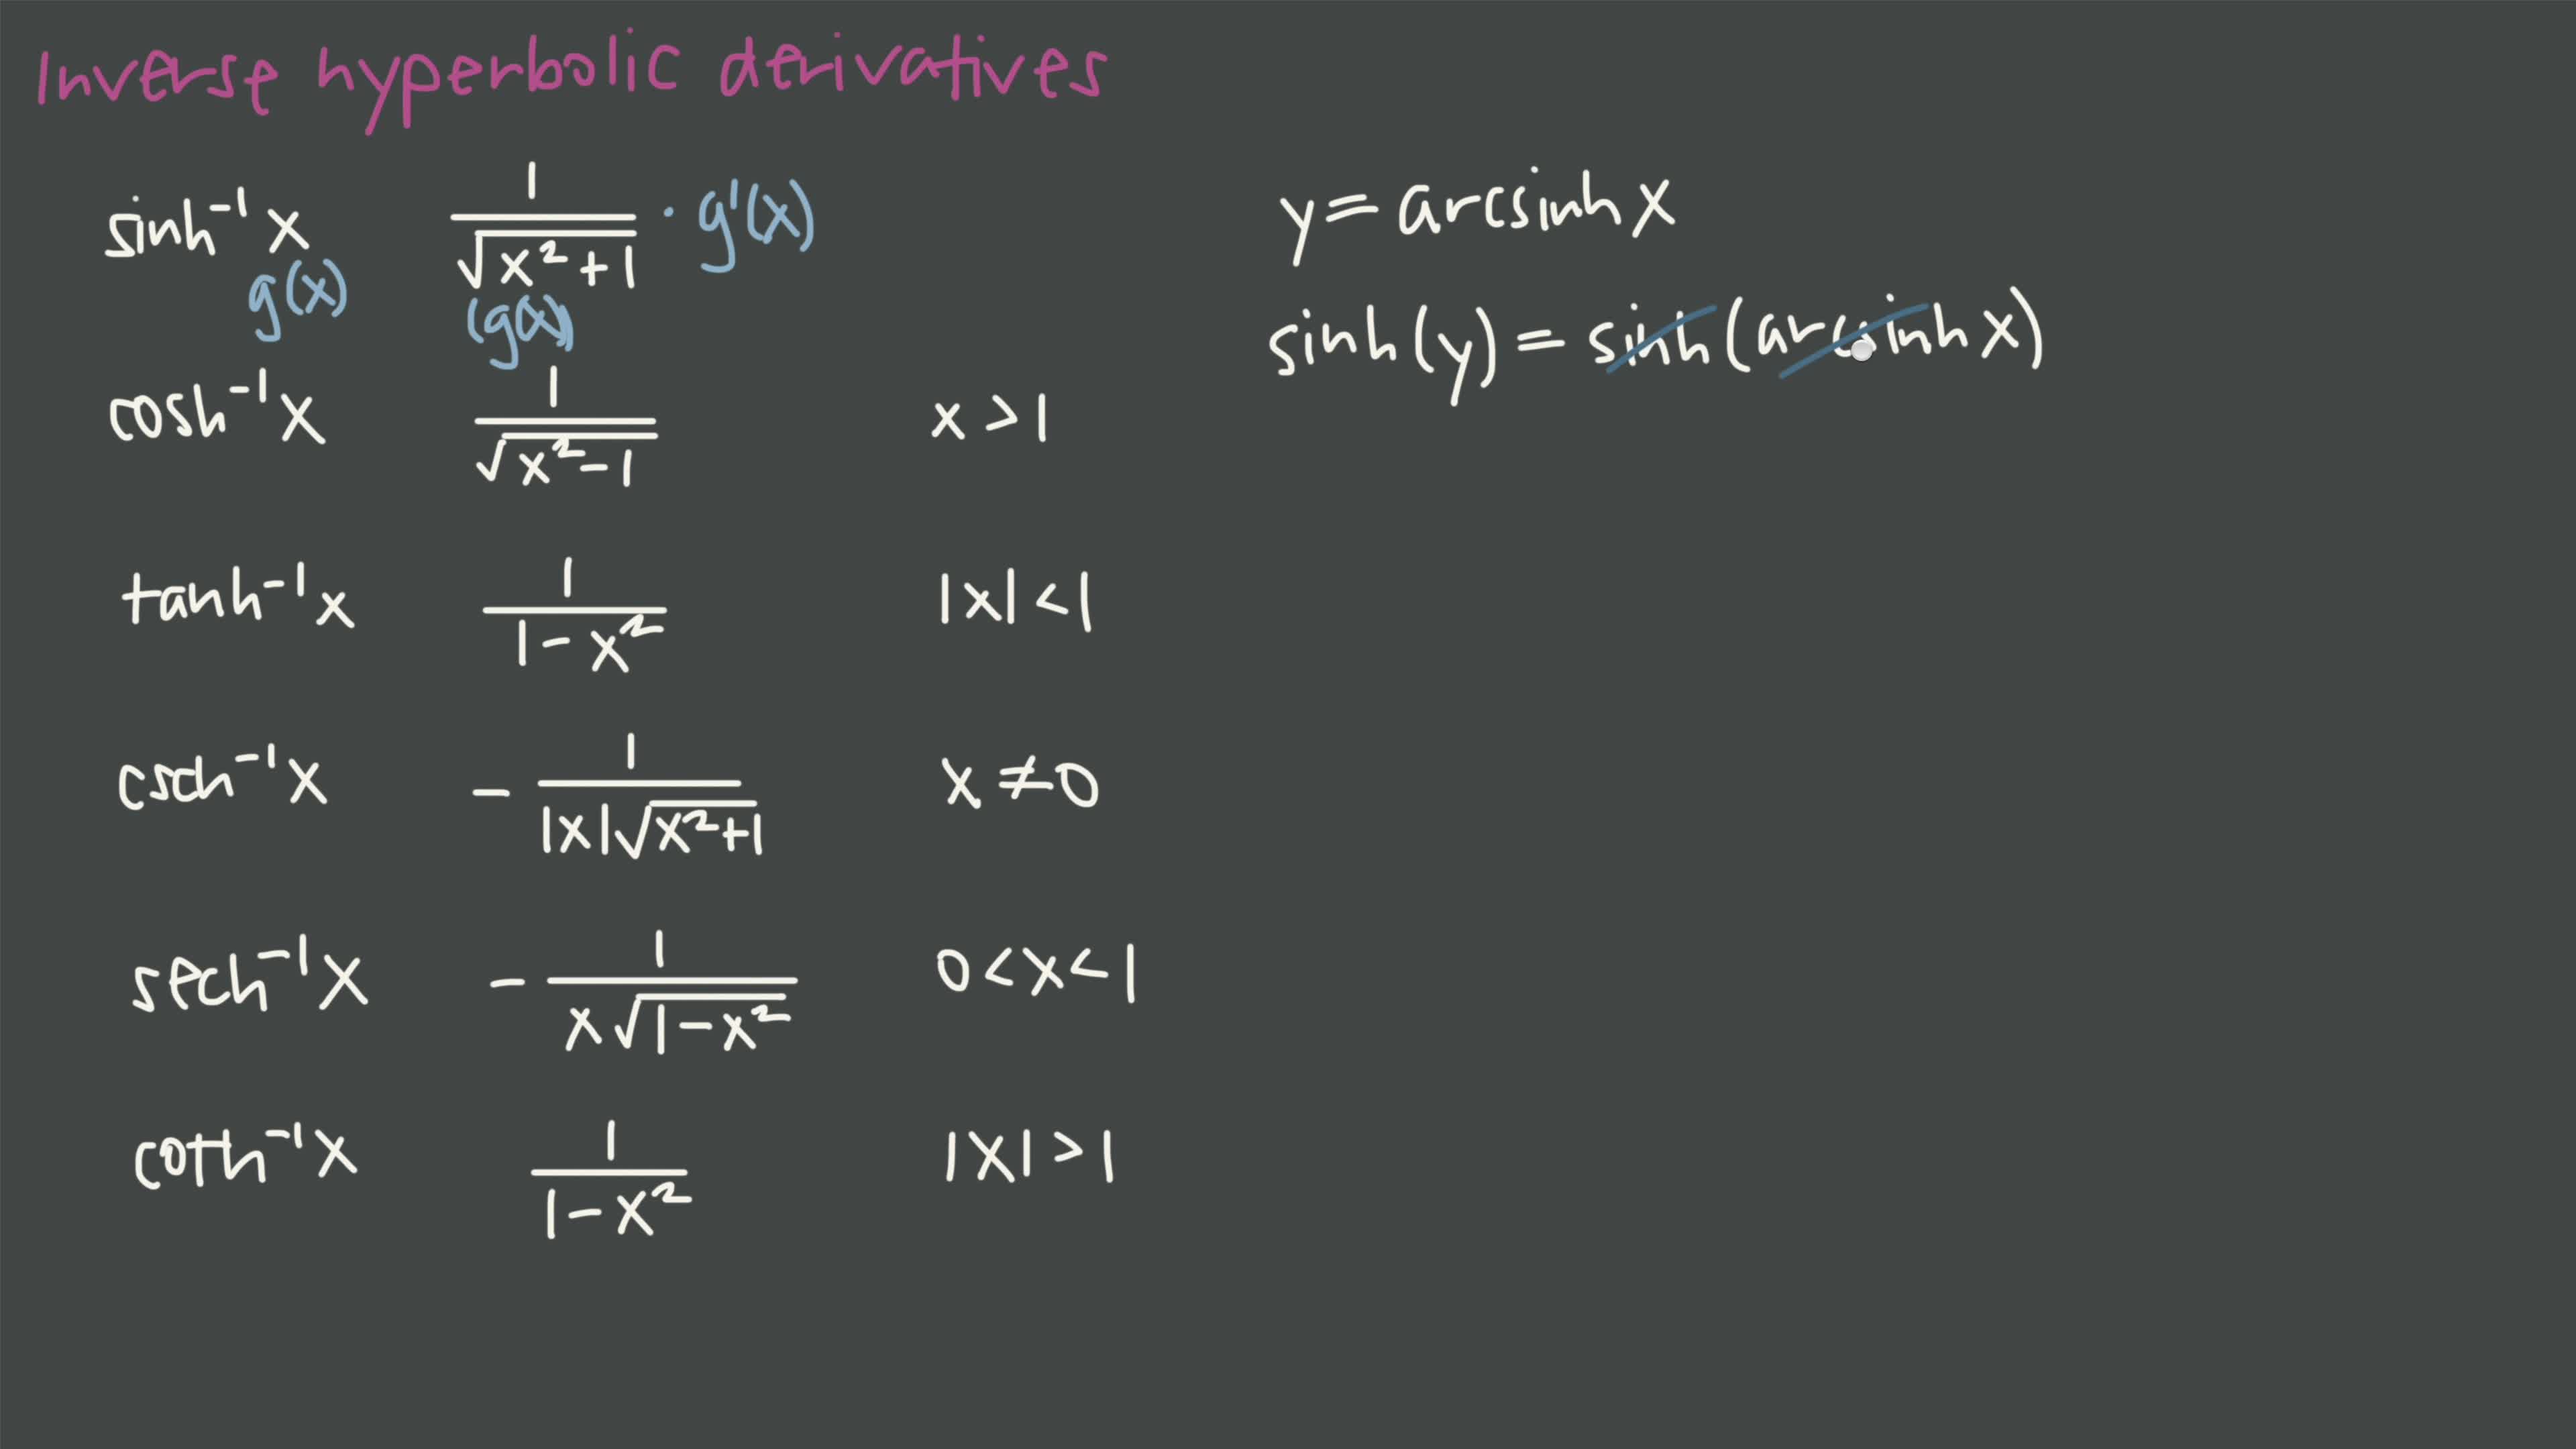 Inverse hyperbolic derivatives
sinh⁻¹ x   1/√(x²+1) · g'(x)
g(x)   (g(x))
cosh⁻¹ x   1/√(x²-1)   x > 1
tanh⁻¹ x   1/(1-x²)   |x| < 1
csch⁻¹ x   - 1/(|x|√(x²+1))   x ≠ 0
sech⁻¹ x   - 1/(x√(1-x²))   0 < x < 1
coth⁻¹ x   1/(1-x²)   |x| > 1
y = arcsinh x
sinh(y) = sinh(arcsinh x)